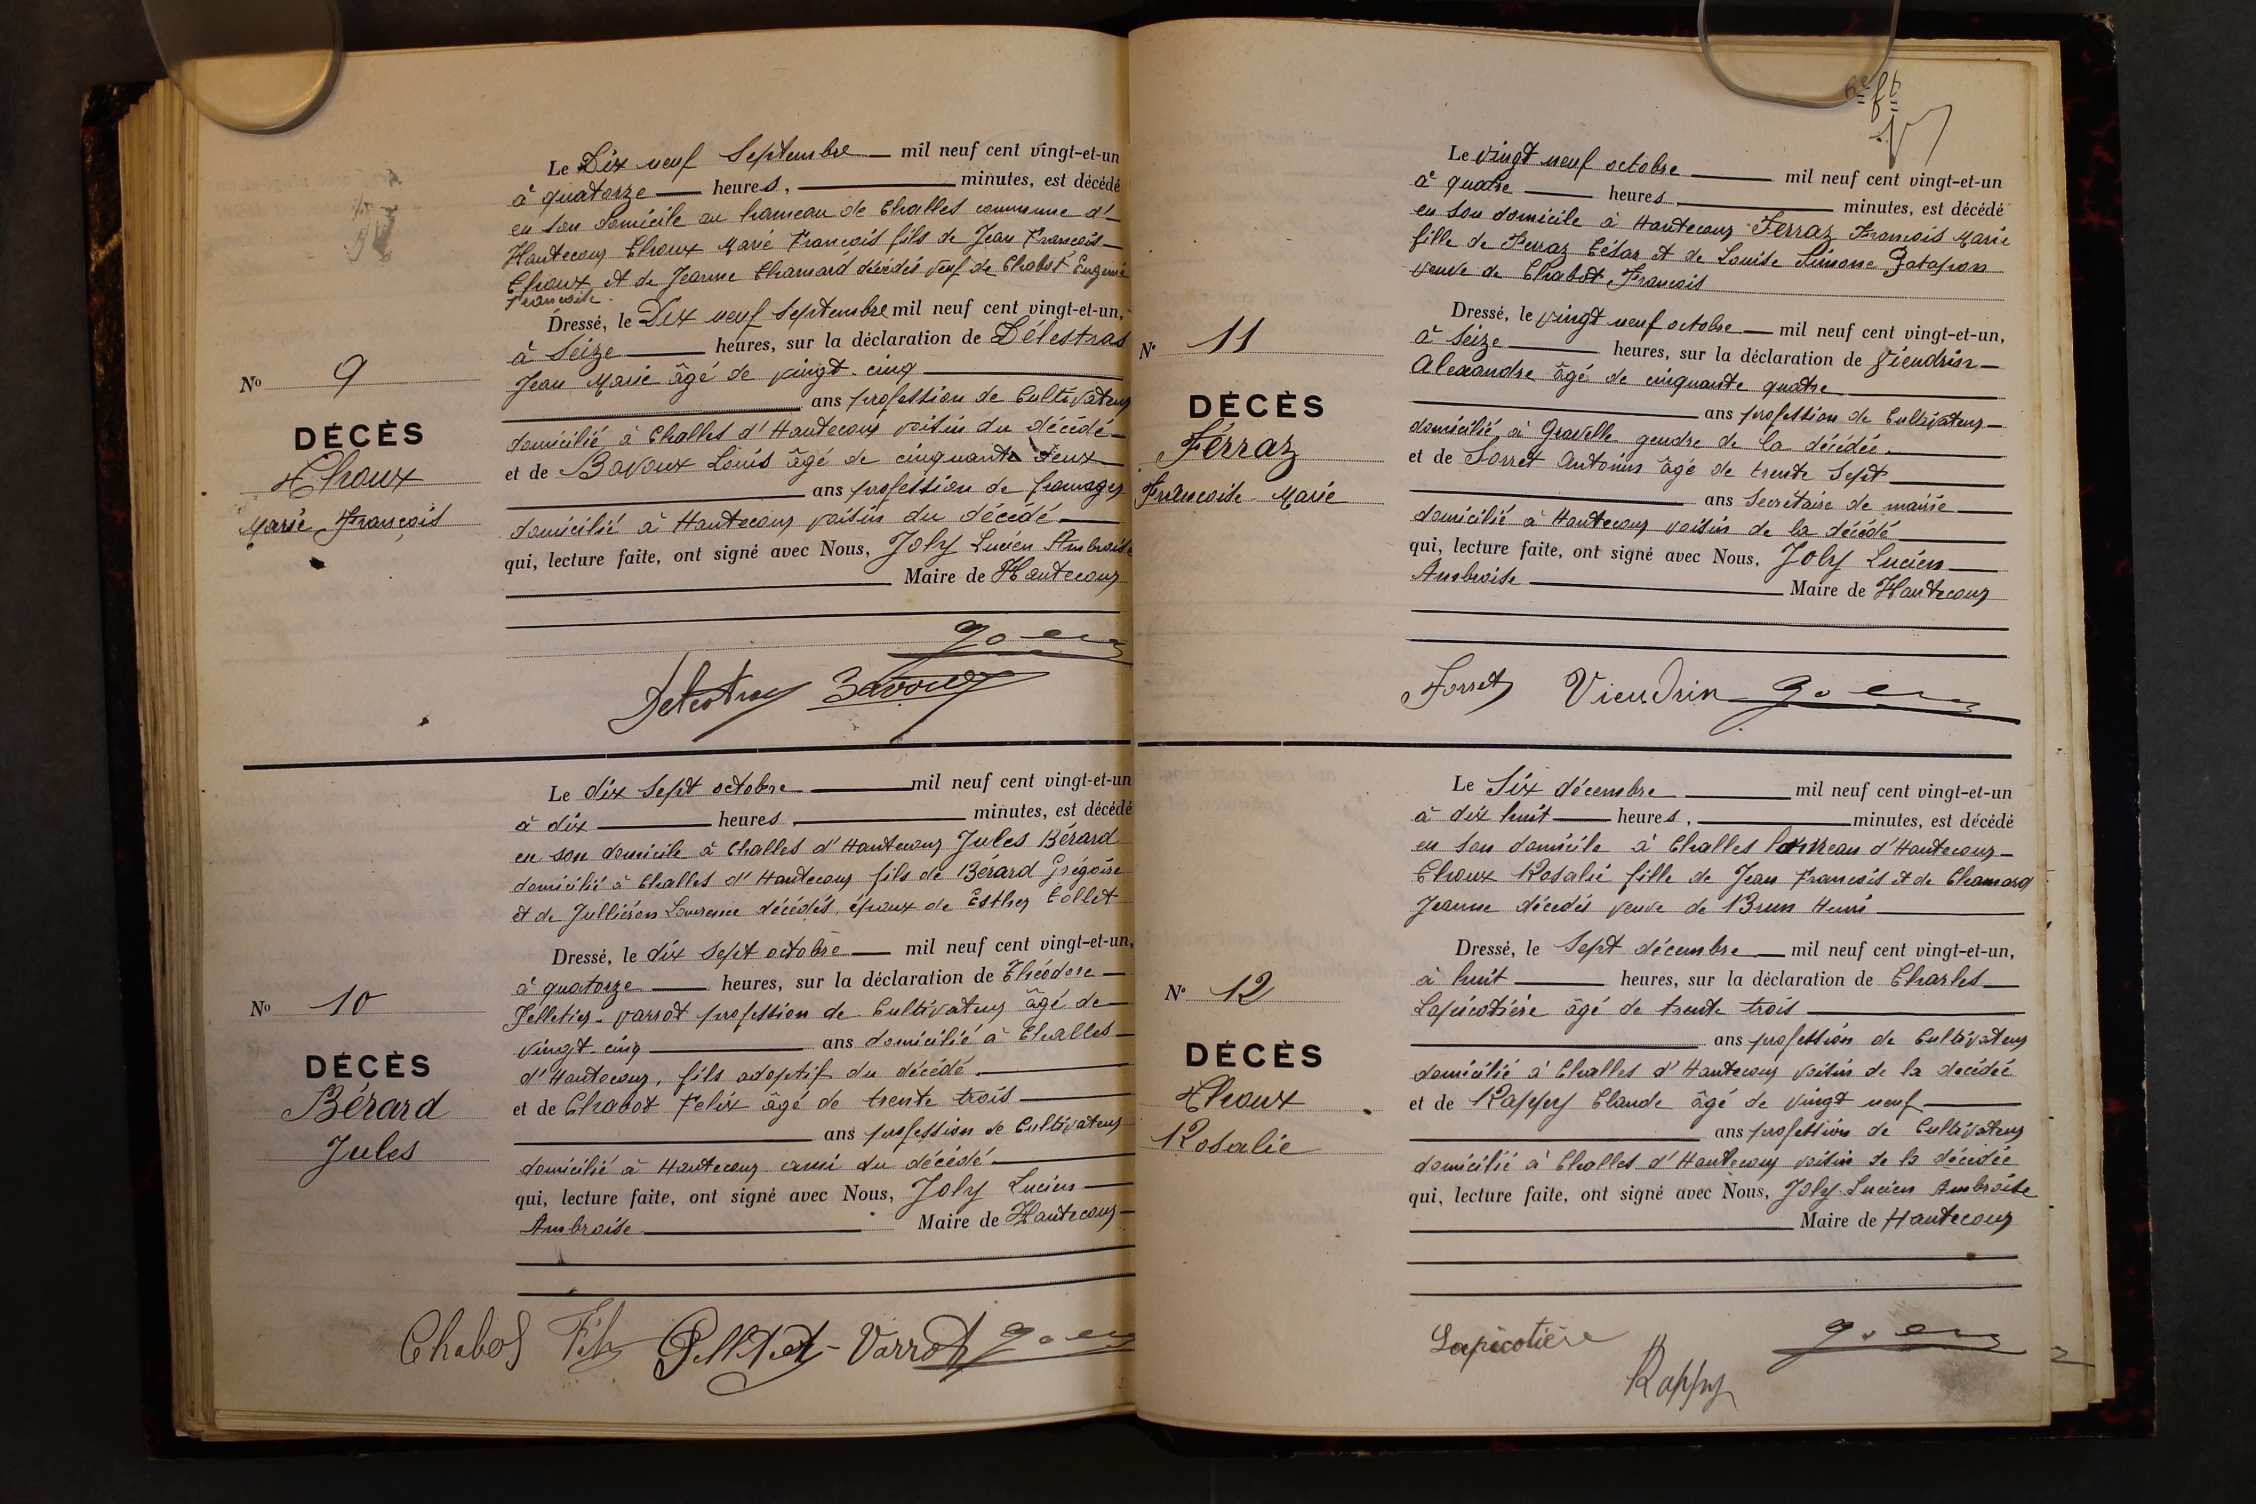 Le Dix neuf Septembre mil neuf cent vingt-et-un
à quatorze heures, minutes, est décédé
en son domicile au hameau de Challes commune d'
Hautecour Choux Marie François fils de Jean François
Choux et de Jeanne Chamard décédés veuf de Chabot Eugénie
Françoise.
Dressé, le Dix neuf Septembre mil neuf cent vingt-et-un,
à Seize heures, sur la déclaration de Délestras
Jean Marie âgé de vingt-cinq
ans profession de Cultivateur
domicilié à Challes d'Hautecour voisin du décédé
et de Bavoux Louis âgé de cinquante deux
ans profession de fromager
domicilié à Hautecour voisin du décédé
qui, lecture faite, ont signé avec Nous, Joly Lucien Ambroise
Maire de Hautecour
No 9
DÉCÈS
Choux
Marie François
Joly
Delestras Bavoux
Le dix sept octobre mil neuf cent vingt-et-un
à dix heures, minutes, est décédé
en son domicile à Challes d'Hautecour Jules Bérard
domicilié à Challes d'Hautecour fils de Bérard Grégoire
et de Jullieron Laurence décédés, époux de Esther Collet
Dressé, le dix sept octobre mil neuf cent vingt-et-un,
à quatorze heures, sur la déclaration de Théodore
Pelletier-Varrot profession de Cultivateur âgé de
vingt-cinq ans domicilié à Challes
d'Hautecour, fils adoptif du décédé
et de Chabot Felix âgé de trente trois
ans profession de Cultivateur
domicilié à Hautecour ami du décédé
qui, lecture faite, ont signé avec Nous, Joly Lucien
Ambroise Maire de Hautecour
No 10
DÉCÈS
Bérard
Jules
Chabot Pelletier-Varrot Joly
6e ft
Le vingt neuf octobre mil neuf cent vingt-et-un
à quatre heures, minutes, est décédé
en son domicile à Hautecour Ferraz François Marie
fille de Ferraz César et de Louise Simone
veuve de Chabot François
Dressé, le vingt neuf octobre mil neuf cent vingt-et-un,
à Seize heures, sur la déclaration de Vieudrin
Alexandre âgé de cinquante quatre
ans profession de Cultivateur
domicilié à Gravelle gendre de la décédée.
et de Sorret Antonin âgé de trente Sept
ans Secrétaire de mairie
domicilié à Hautecour voisin de la décédé
qui, lecture faite, ont signé avec Nous, Joly Lucien
Ambroise Maire de Hautecour
No 11
DÉCÈS
Férraz
Françoise Marie
Sorret Vieudrin Joly
Le Six décembre mil neuf cent vingt-et-un
à dix huit heures, minutes, est décédé
en son domicile à Challes hameau d'Hautecour
Choux Rosalie fille de Jean François et de Chamard
Jeanne décedés veuve de Brun Henri
Dressé, le Sept décembre mil neuf cent vingt-et-un,
à huit heures, sur la déclaration de Charles
Lapicotière âgé de trente trois
ans profession de Cultivateur
domicilié à Challes d'Hautecour voisin de la décédée
et de Rappy Claude âgé de vingt neuf
ans profession de Cultivateur
domicilié à Challes d'Hautecour voisin de la décedée
qui, lecture faite, ont signé avec Nous, Joly Lucien Ambroise
Maire de Hautecour
No 12
DÉCÈS
Choux
Rosalie
Lapicotière Joly
Rappy